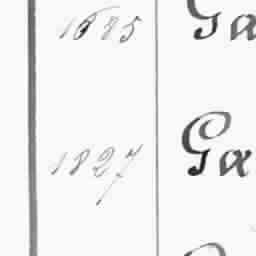 1685 Ga
1827 Ga